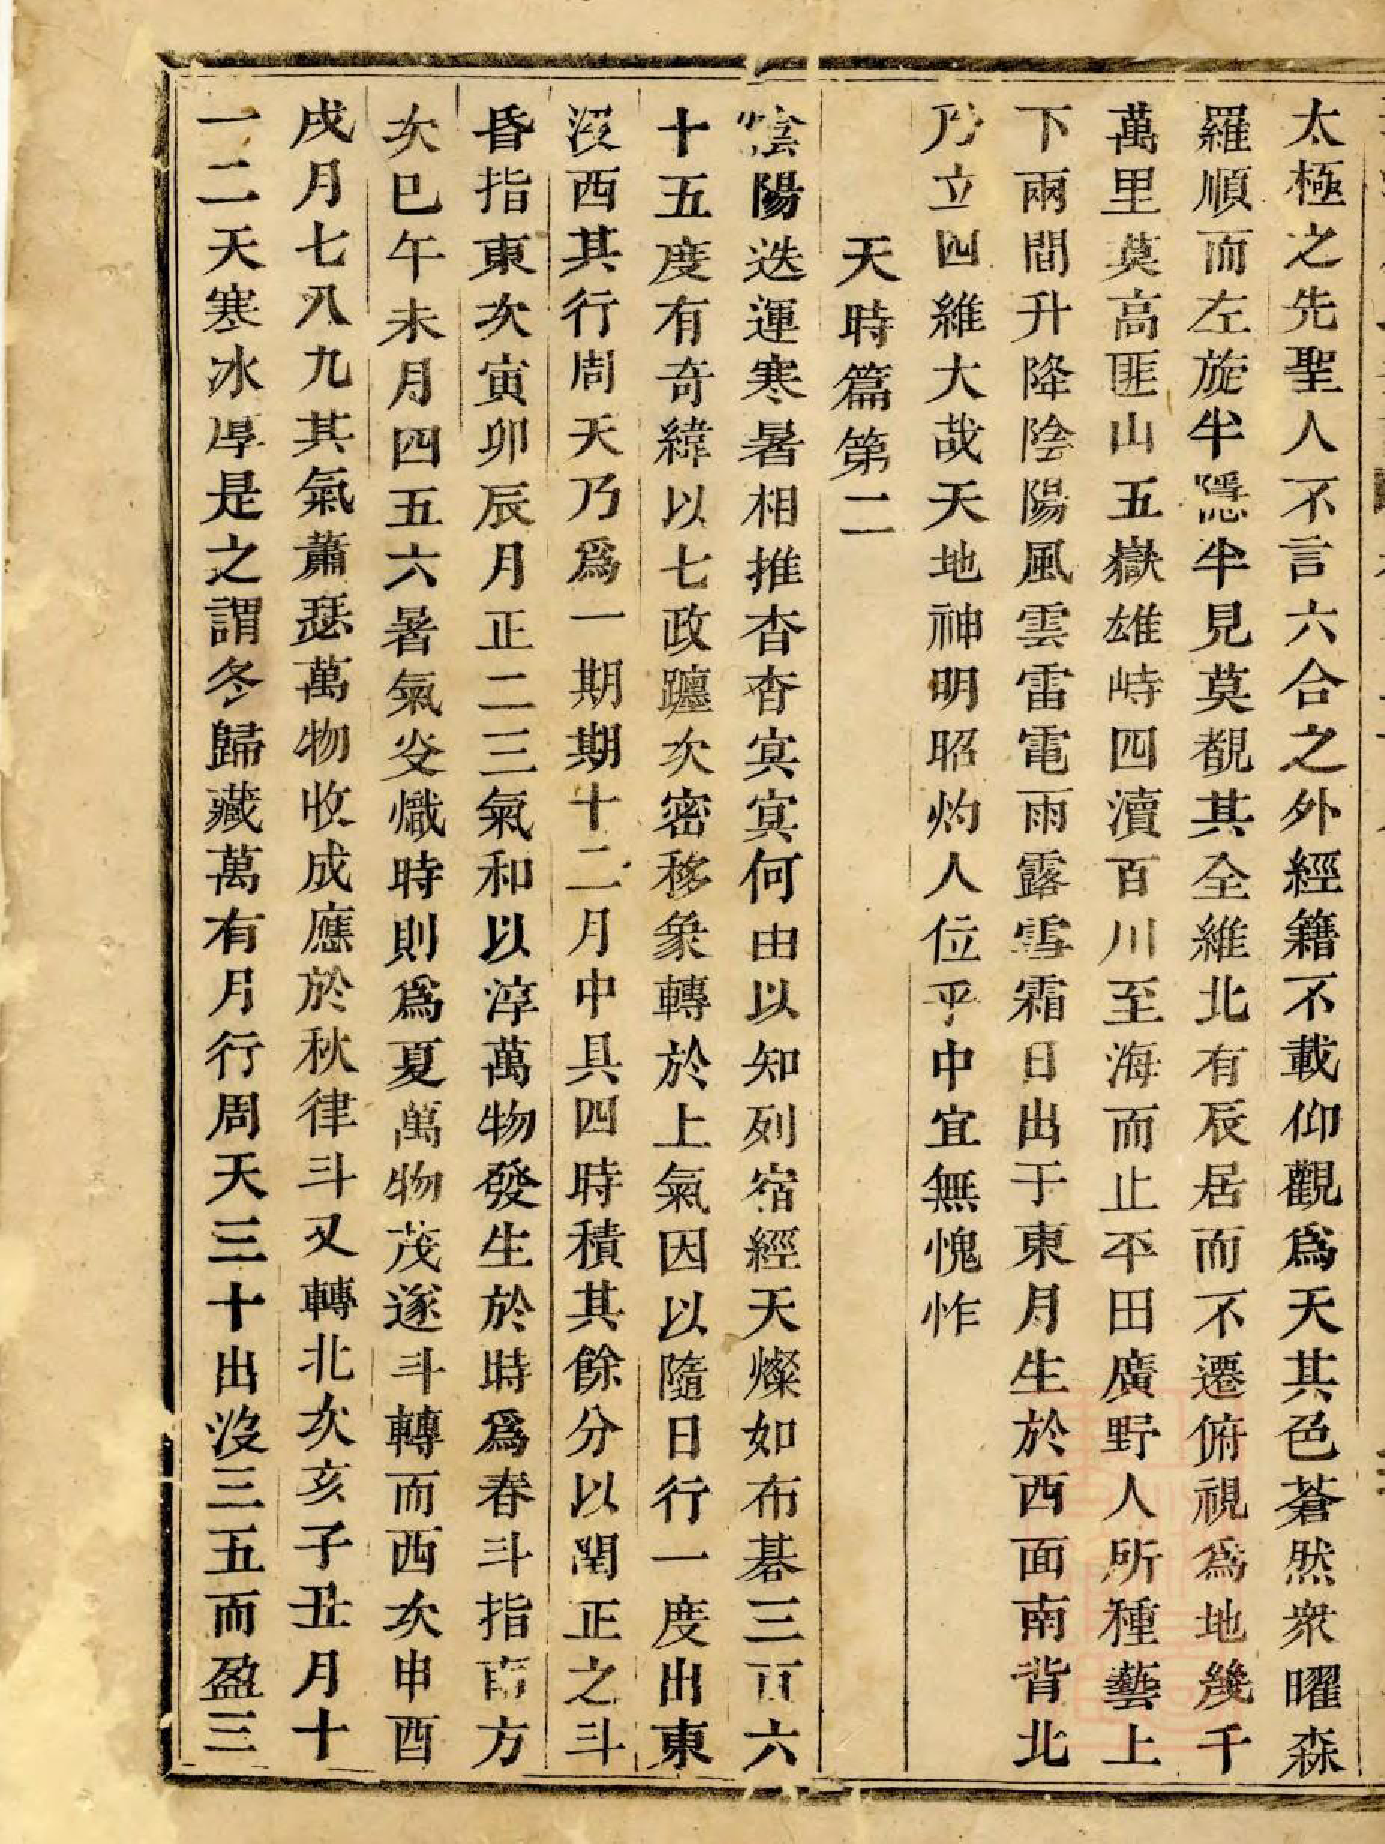 太極之先聖人不言六合之外經籍不載仰觀爲天其色蒼然衆曜森
羅順而左旋半隱半見莫覩其全維北有辰居而不遷俯視爲地幾千
萬里莫高匪山五嶽雄峙四瀆百川至海而止平田廣野人所種藝上
下兩間升降陰陽風雲雷電雨露雪霜日出于東月生於西面南背北
乃立四維大哉天地神明昭灼人位乎中宜無愧怍
天時篇第二
陰陽迭運寒暑相推杳杳冥冥何由以知列宿經天燦如布碁三百六
十五度有奇緯以七政躔次密移象轉於上氣因以隨日行一度出東
沒西其行周天乃爲一期期十二月中具四時積其餘分以閏正之斗
昏指東次寅卯辰月正二三氣和以淳萬物發生於時爲春斗指南方
次巳午未月四五六暑氣炎熾時則爲夏萬物茂遂斗轉而西次申酉
戌月七八九其氣蕭瑟萬物收成應於秋律斗又轉北次亥子丑月十
一二天寒冰厚是之謂冬歸藏萬有月行周天三十出沒三五而盈三